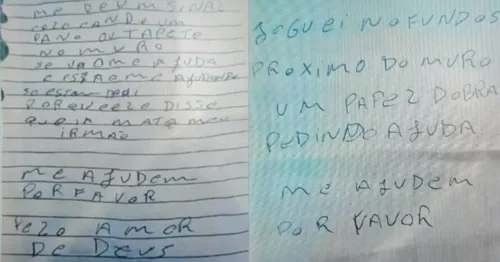 ME DEUM SINAL
COLOCANDEUM
PANO OU TAPETE
NO MURO
SE VAO ME AJUDA
SO ESTOU PEDI
PORQUE ELE DISSE
QUE IA MATA MEU
IRMAO
ME AJUDEM
POR FAVOR
PELO AMOR
DE DEUS
JOGUEI NO FUNDOS
PROXIMO DO MURO
UM PAPEL DOBRA
PEDINDO AJUDA
ME AJUDEM
POR FAVOR